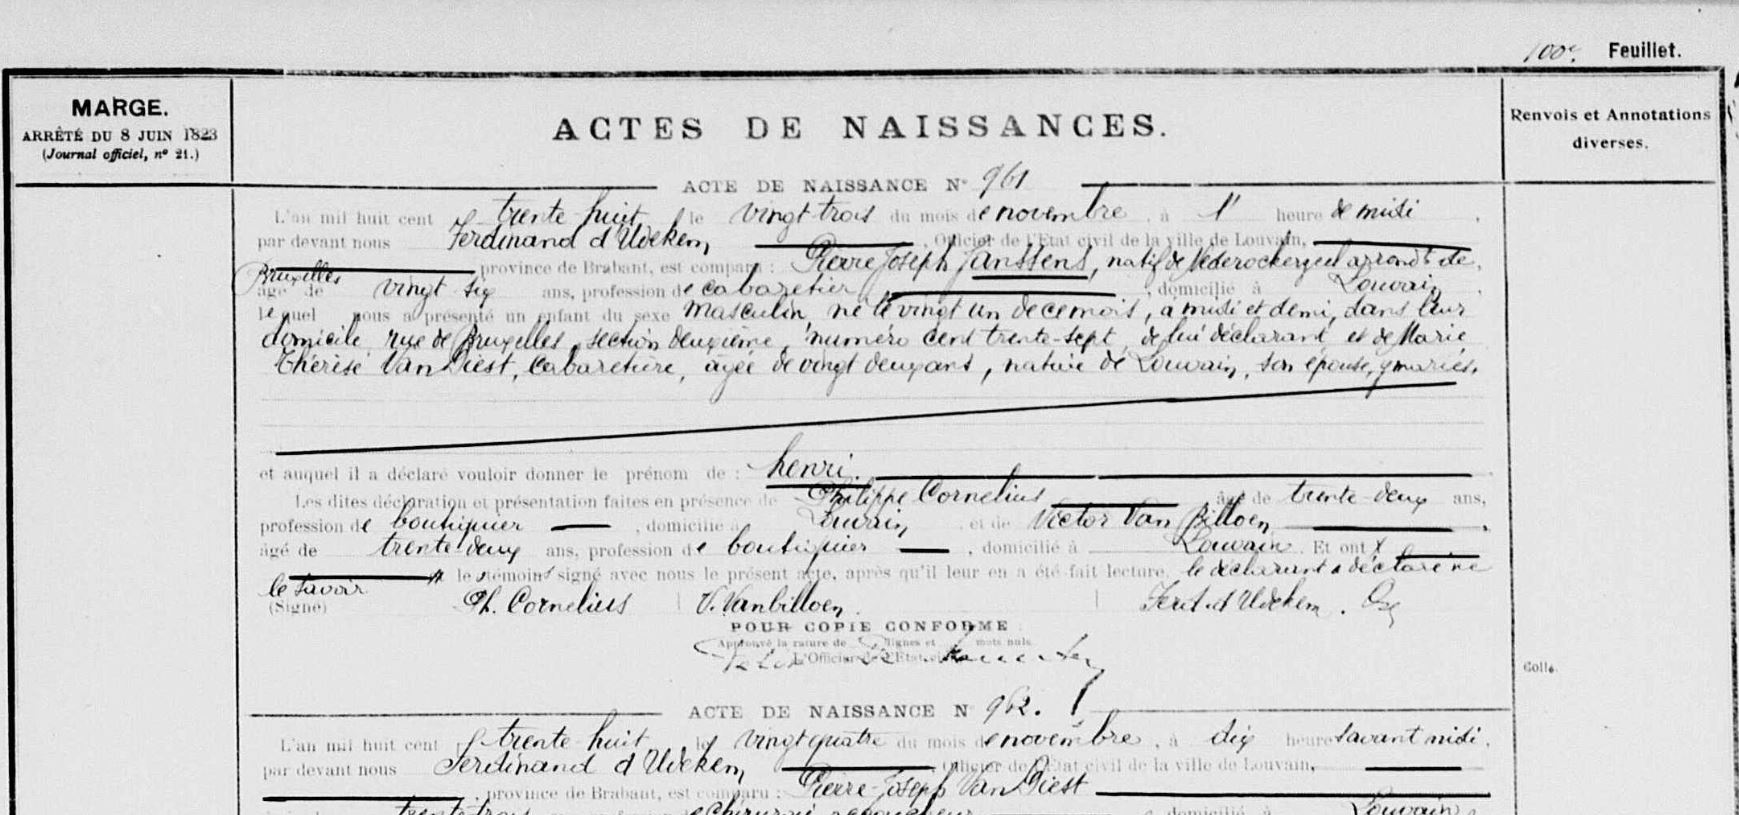 100e Feuillet.
MARGE.
ARRÊTÉ DU 8 JUIN 1823
(Journal officiel, n° 21.)
ACTES DE NAISSANCES.
Renvois et Annotations
diverses.
ACTE DE NAISSANCE N° 961
L'an mil huit cent trente huit le vingt trois du mois de novembre, à 1' heure de midi
par devant nous Ferdinand d'Udekem, Officier de l'Etat civil de la ville de Louvain,
province de Brabant, est comparu : Pierre Joseph Janssens, natif de Nederockerzeel arrondt de
Bruxelles
âgé de vingt six ans, profession de cabaretier, domicilié à Louvain
lequel nous a présenté un enfant du sexe masculin, né le vingt un de ce mois, à midi et demi, dans leur
domicile rue de Bruxelles, section deuxième, numéro cent trente-sept, de lui déclarant et de Marie
Thérèse Van Diest, Cabaretière, âgée de vingt deux ans, native de Louvain, son épouse, mariés.
et auquel il a déclaré vouloir donner le prénom de : henri
Les dites déclaration et présentation faites en présence de Philippe Cornelius âgé de trente deux ans,
profession de boutiquier, domicilié à Louvain, et de Victor Van Billoen
âgé de trente deux ans, profession de boutiquier, domicilié à Louvain. Et ont
le savoir les témoins signé avec nous le présent acte, après qu'il leur en a été fait lecture, le déclarant a déclaré ne
(Signé) Ph. Cornelius V. Vanbilloen. Ferd. d'Udekem.
POUR COPIE CONFORME
Approuvé la rature de lignes et mots nuls.
L'Officier de l'Etat civil
Colle.
ACTE DE NAISSANCE N 962.
L'an mil huit cent trente huit le vingt quatre du mois de novembre, à dix heures avant midi.
par devant nous Ferdinand d'Udekem, Officier de l'Etat civil de la ville de Louvain,
province de Brabant, est comparu : Pierre Joseph Van Diest
trente trois chirurgie accoucheur domicilié à Louvain